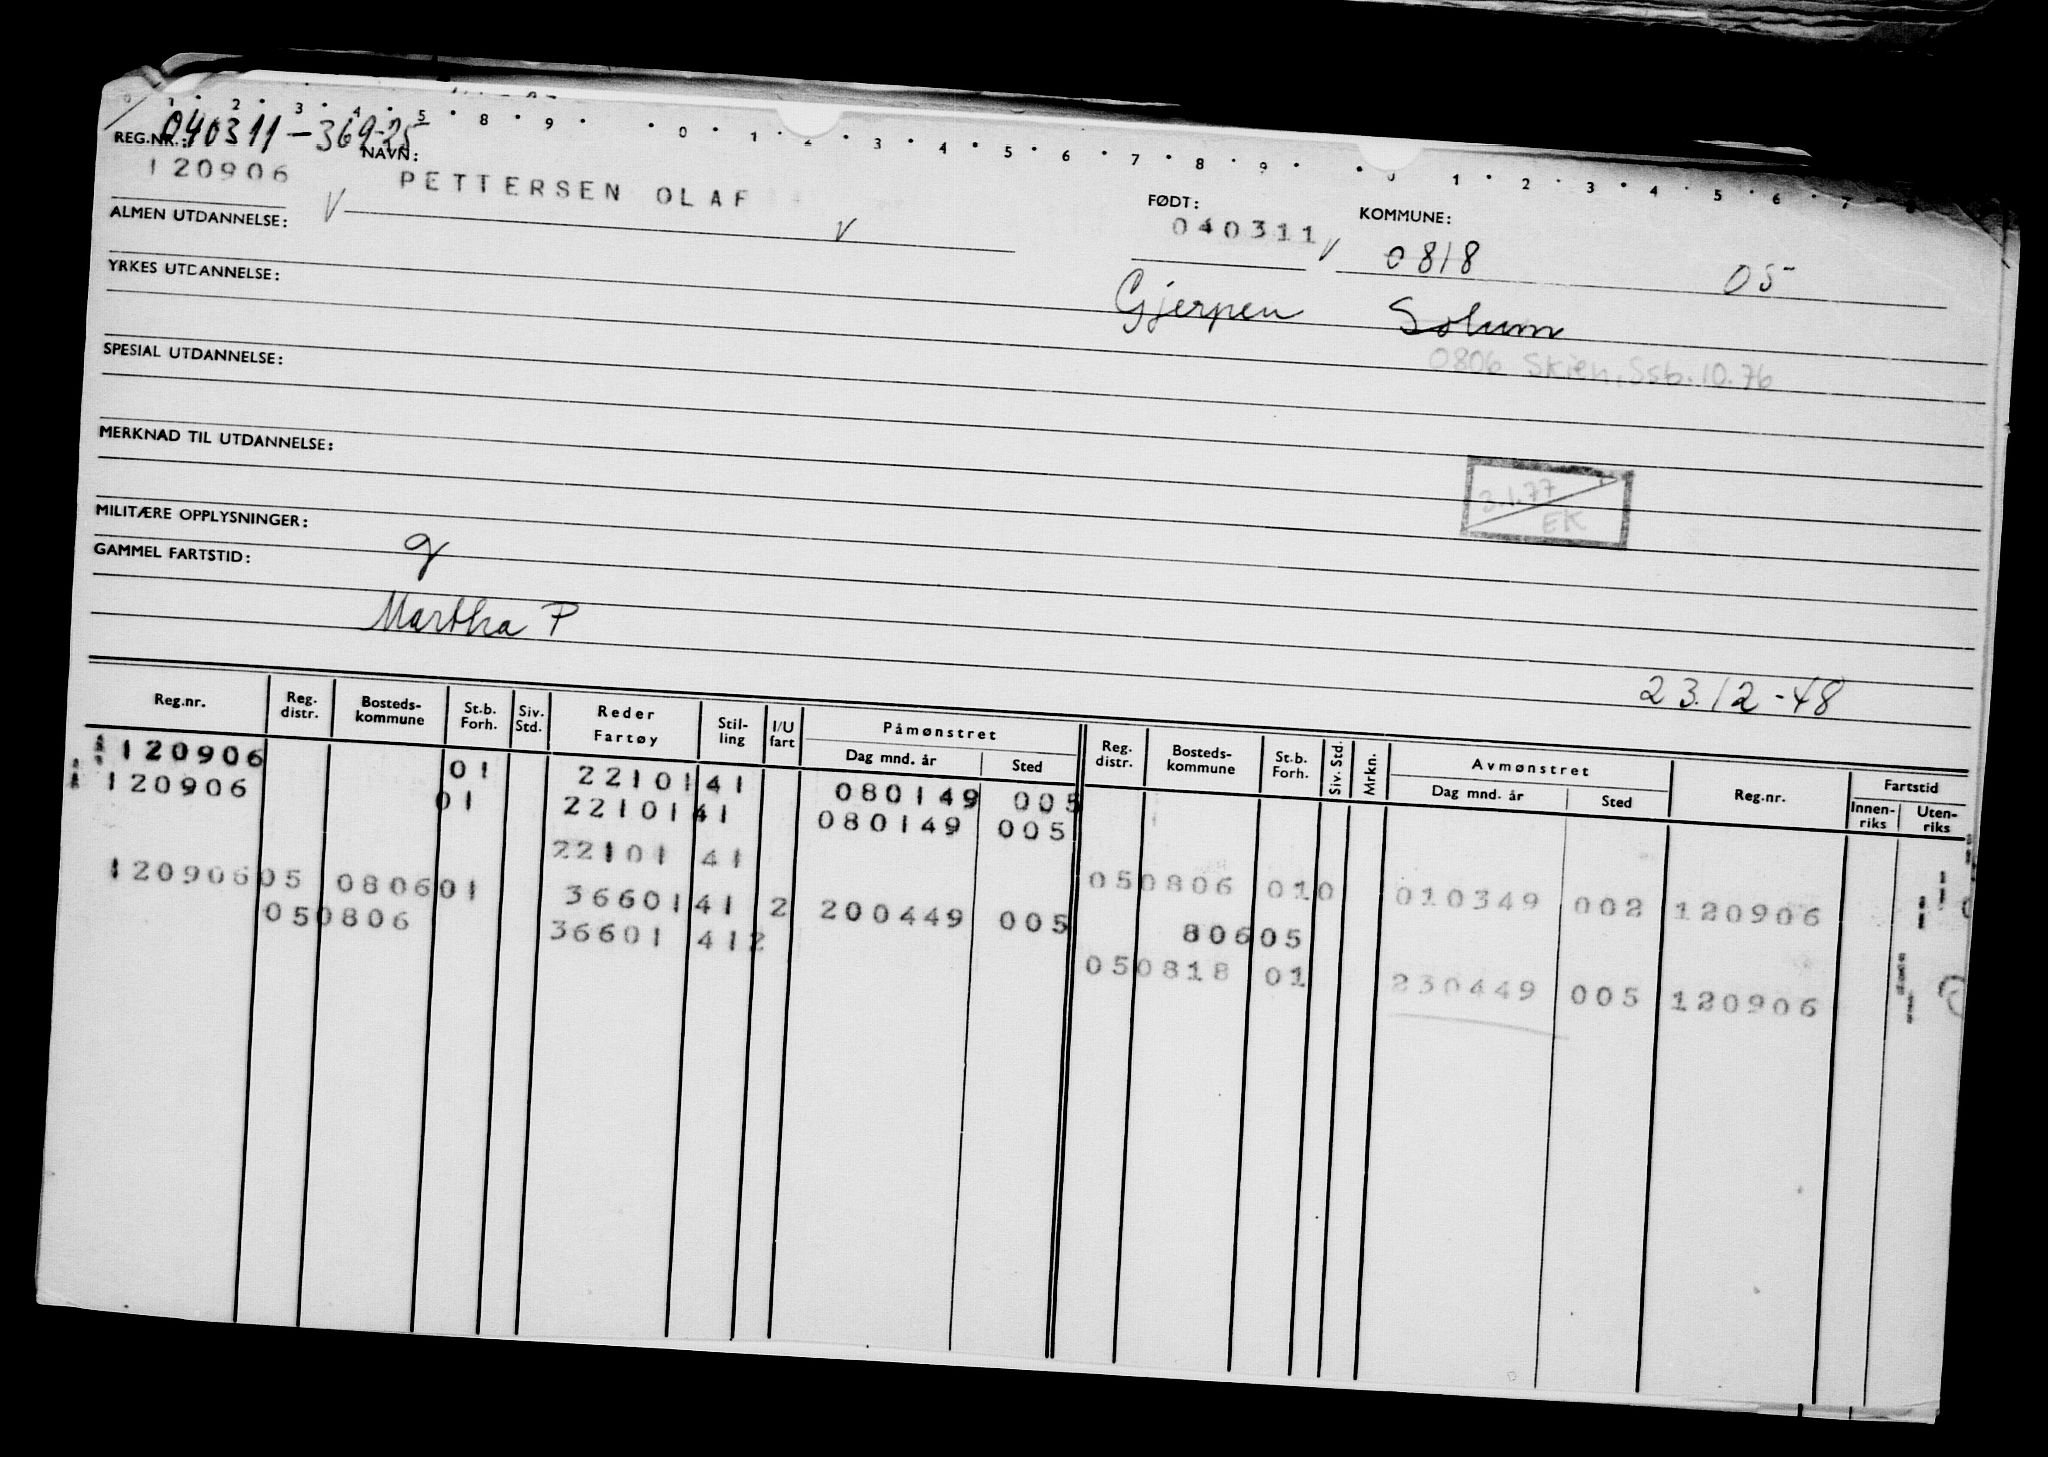 0 1 2 3 4 5 8 9 0 1 2 3 4 5 6 7 8 9 0 1 2 3 4 5 6 7
040311-369-25
REG.NR.: NAVN: FØDT: KOMMUNE:
120906 PETTERSEN OLAF 040311 0818 05
ALMEN UTDANNELSE:
YRKES UTDANNELSE: Gjerpen Solum
0806 Skien, Ssb. 10.76
SPESIAL UTDANNELSE:
MERKNAD TIL UTDANNELSE:
3.1.77
EK
MILITÆRE OPPLYSNINGER:
GAMMEL FARTSTID: g
Martha P
23.12-48
Reg.nr. Reg. distr. Bosteds-kommune St.b. Forh. Siv. Std. Reder Fartøy Stil-ling I/U fart Påmønstret Dag mnd. år Sted Reg. distr. Bosteds-kommune St.b. Forh. Siv. Std. Mrkn. Avmønstret Dag mnd. år Sted Reg.nr. Fartstid Innen-riks Uten-riks
120906 01 22101 41 080149 005
120906 01 22101 41 080149 005
22101 41 050806 010 010349 002 120906
120906 05 0806 01 36601 41 2 200449 005 806 05
050806 36601 41 2 050818 01 230449 005 120906